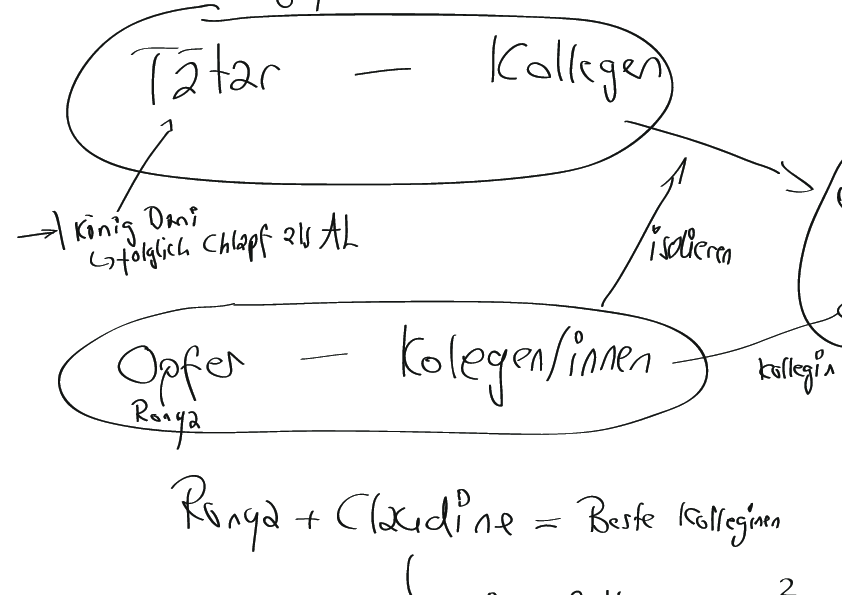 Tätar — Kollegen
→ König Dani
↳ folglich Chlapf als AL
isolieren
Opfer — Kolegen/innen
Ronya
kollegin
Ronya + Claudine = Beste Kolleginen
2